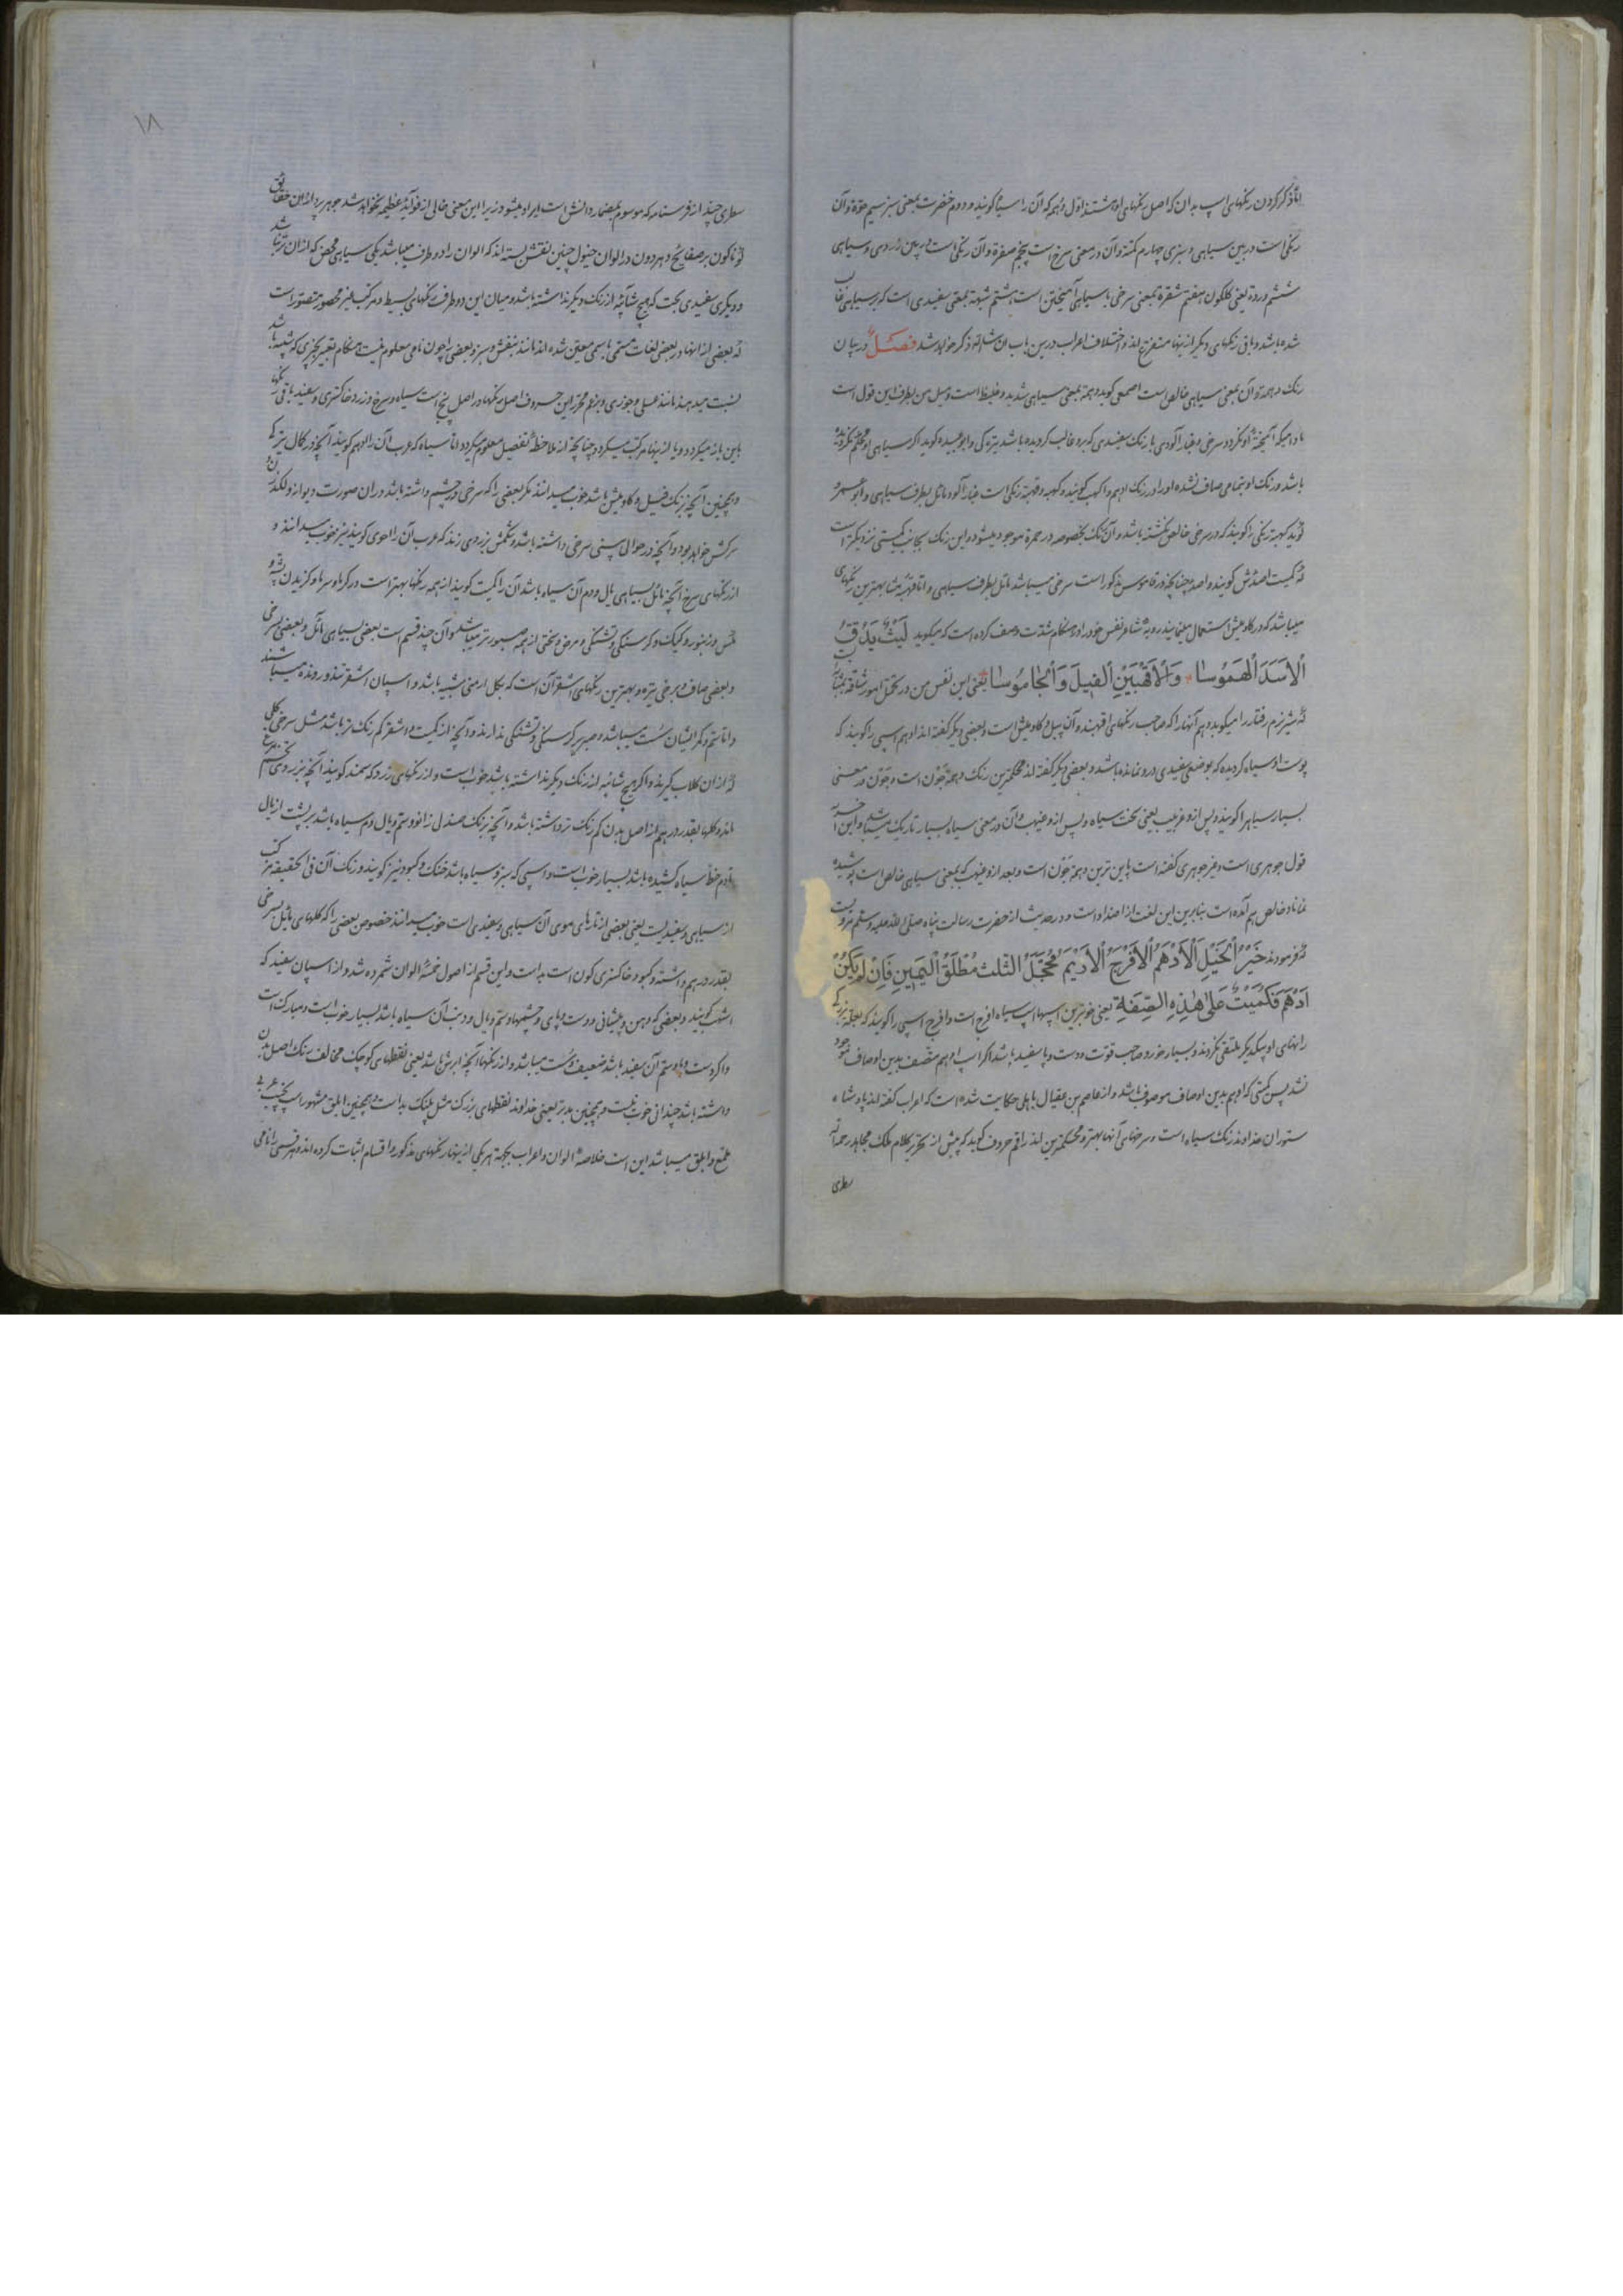 اما ذکر کردن رنگهای اسپ بدان که اصل رنگهای او هشتند اول دهمه که آن را سیاه گویند و دوم خضرت بمعنی سبز سیم حوة و آن
رنگی است در بین سیاهی و سبزی چهارم کمتة و آن در معنی سرخ است پنجم صفرة و آن رنگی است در بین زردی و سیاهی
ششم وردة یعنی گلگون هفتم شقرة بمعنی سرخی با سیاهی آمیختن است هشتم شهبة بمعنی سفیدی است که بر سیاهی غالب
شده باشد و باقی رنگهای دیگر ازینها متفرع اند و اختلاف اعراب درین باب ان شاء الله ذکر خواهد شد فصل در بیان
رنگ دهمة و آن بمعنی سیاهی خالص است اصمعی گوید دهمة بمعنی سیاهی شدید و غلیظ است و میل من بطرف این قول است
مادامیکه آمیخته او نگردد سرخی و غبار آلودی با رنگ سفیدی که برو غالب گردیده باشد تیره گی و ابو عبیده گوید اگر سیاهی او محکم نگردیده
باشد و رنگ او بتمامی صاف نشده او را در رنگ ادهم و اکهب گویند و کهبه و قهبة رنگی است غبار آلود مائل بطرف سیاهی و ابو عمرو
گوید کهبة رنگی را گویند که در سرخی خالص نگشته باشد و آن رنگ بخصوصه در حمرة موجود میشود و این رنگ بجانب کمیتی نزدیکتر است
که کمیت اصدش گویند و اصد چنانچه در قاموس مذکور است سرخی میباشد مائل بطرف سیاهی و اما قهبة مشابهترین رنگهای
میباشد که در گاومیش استعمال مینمایند رؤبه شاعر نفس خود را در هنگام شدت وصف کرده است که میگوید لَیْثٌ یَدُقُّ
الْاَسَدَ الْهَمُوسا * وَالْاَقْهَبَیْنِ الْفِیلَ وَالْجامُوسا * یعنی این نفس من در تحمل امور شاقه بمثابه
که شیر نرم رفتار را میکوبد و هم آنها را که صاحب رنگهای اقهبند و آن پیل و گاومیش است و بعضی دیگر گفته اند ادهم اسپی را گویند که
پوست او سیاه گردیده که بوضعی سفیدی درو نمانده باشد و بعضی دیگر گفته اند محکمترین رنگ دهمة جَوْن است و جَوْن در معنی
بسیار سیاه را گویند و پس ازو غربیب یعنی سخت سیاه و پس ازو غیهب و آن در معنی سیاه بسیار تاریک میباشد و این آخر
قول جوهری است و غیر جوهری گفته است پایین ترین دهمة جَوْن است و بعد ازو غیهب که بمعنی سیاهی خالص است پوشیده
نماناد خالص هم آمده است بنابرین این لغت از اضداد است و در حدیث از حضرت رسالت پناه صلی الله علیه و سلم مرویست
که فرمودند خَیْرُ الْخَیْلِ الْاَدْهَمُ الْاَقْرَحُ الْاَرْثَمُ مُحَجَّلُ الثَّلٰثِ مُطْلَقُ الْیَمِینِ فَاِنْ لَمْ یَکُنْ
اَدْهَمَ فَکُمَیْتٌ عَلٰی هٰذِهِ الصِّفَةِ یعنی خوبترین اسپها اسپ سیاه اقرح است و اقرح اسپی را گویند که
رانهای او بیکدیگر ملتقی نگردند و بسیار خور و صاحب قوت و دست و پا سفید باشد اگر اسپ ادهم متصف بدین اوصاف موجود
نشد پس کمیتی که او هم بدین اوصاف موصوف باشد و از عاصم بن باهلی حکایت شده است که اعراب گفته اند پادشاه
ستوران خداوند رنگ سیاه است و سرخهای آنها بهتر و محکمترین اند راقم حروف گوید که پیش از تحریر کلام ملک مجاهد رحمه الله
سطری
۱۸
سطری چند از فرسنامه که موسوم بمضمار دانش است ایراد میشود زیرا این معنی خالی از فوائد عظیمه نخواهد شد جوهر پردازان حقایق
گوناگون بر صفایح دهر دون در الوان خیول چنین نقش بسته اند که الوان را دو طرف میباشد یکی سیاهی محض که از آن
و دیگری سفیدی بحت که هیچ شائبه از رنگ دیگر نداشته باشد و میان این دو طرف رنگهای بسیط و مرکب غیر محصور متصور است
که بعضی از آنها در بعضی لغات مسمی باسمی معین شده اند مانند بنفش و سبز و بعضی را چون نامی معلوم نیست هنگام تعبیر بچیزی که شبیه باشد
نسبت میدهند مانند عسلی و جوزی و بزعم محرر این حروف اصل رنگها در اصل پنج است سیاه و سرخ و زرد و خاکستری و سفید باقی رنگها
باین باز میگردد و یا ازینها مرکب میگردد چنانچه از ملاحظه تفصیل معلوم میگردد اما سیاه که عرب آن را ادهم گویند آنچه در کمال
و همچنین آنچه برنگ فیل و گاومیش باشد خوب میدانند مگر بعضی را که سرخی در چشم داشته باشد در آن صورت دیوانه و لگدزن و
سرکش خواهد بود و آنچه در حوالی بینی سرخی داشته باشد و شکمش بزردی زند که عرب آن را احوی گویند نیز خوب میدانند و
از رنگهای سرخ آنچه مائل بسیاهی یال و دم آن سیاه باشد آن را کمیت گویند از همه رنگها بهتر است در گرما و سرما و گزیدن پشه و
مگس و زنبور و کیک و گرسنگی و تشنگی و مرض و سختی از همه صبورتر میباشد و آن چند قسم است بعضی بسیاهی مائل و بعضی بسرخی
و بعضی صاف و برخی تیره و بهترین رنگهای اشقر آن است که بگل ارمنی شبیه باشد و اسپان اشقر تند و رونده میباشند
و اما سم و کمر ایشان سست میباشد و صبر بر گرسنگی و تشنگی ندارند و آنچه از کمیت و اشقر کم رنگ تر باشد مثل سرخی گلی
که از آن گلاب گیرند و اگر هیچ شائبه از رنگ دیگر نداشته باشد خوب است و از رنگهای زرد که سمند گویند آنچه بزردی تخم مرغ
ماند و گلها بقدر درهم از اصل بدن کم رنگ تر داشته باشد و آنچه برنگ صندل زانو و سم و یال و دم سیاه باشد بر پشت از یال
تا دم خط سیاه کشیده باشد بسیار خوب است و اسپی که سبز و سیاه باشد خنگ و کبود نیز گویند و رنگ آن فی الحقیقه مرکب
از سیاهی و سفیدیست یعنی بعضی از تارهای موی آن سیاهی و سفیدی است خوب میدانند خصوص بعضی را که گلهای مائل بسرخی
بقدر درهم داشته و کبود خاکستری گون است بد است و این قسم از اصول خمسه الوان شمرده شد و از اسپان سفید که
اشهب گویند و بعضی که دهن و پیشانی و دست و پای و چشمها و سم و یال و ذنب آن سیاه باشد بسیار خوب است و مبارک است
و اگر دست و پا و سم آن سفید باشد ضعیف و سست میباشد و از رنگها آنچه ابرش باشد یعنی نقطهای کوچک مخالف رنگ اصل بدن
داشته باشد چندانی خوب نیست و همچنین مدنر یعنی خداوند نقطهای بزرگ مثل پلنگ بد است و همچنین ابلق مشهور اسپ چپ بعربی
ملمع و ابلق میباشد این است خلاصه الوان و اعراب بجهة هر یکی ازینها رنگهای مذکوره اقسام اثبات کرده اند و هر قسمی را نامی